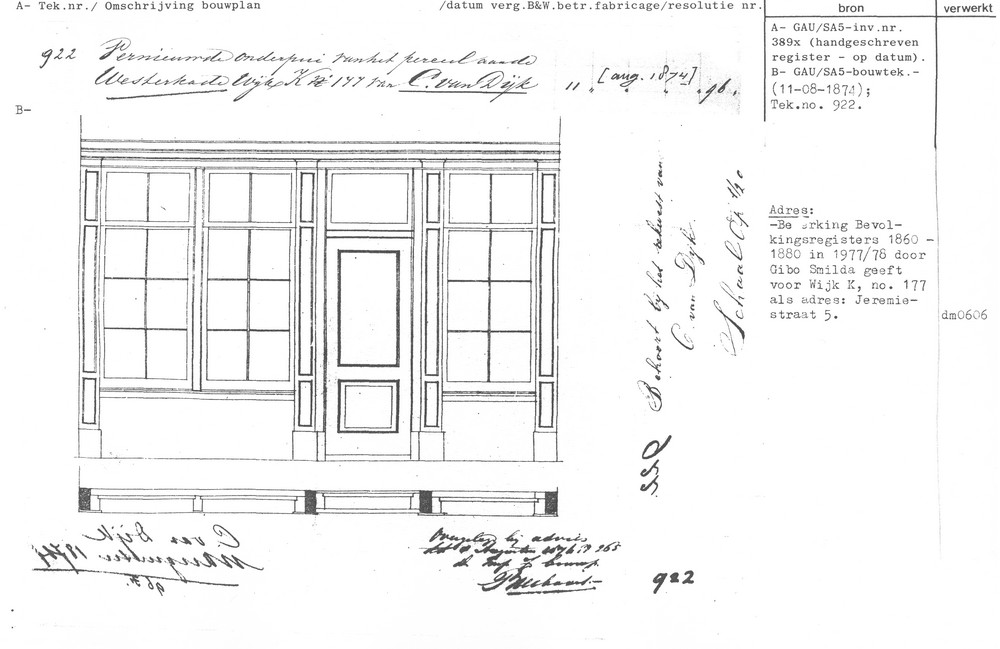 A- Tek.nr./ Omschrijving bouwplan
/datum verg.B&W.betr.fabricage/resolutie nr.
bron
verwerkt
922 Vernieuwde onderpui van het perceel aan de
Westerkade Wijk K No 177 van C. van Dijk
11 [aug. 1874] 96.
A- GAU/SA5-inv.nr.
389x (handgeschreven
register - op datum).
B- GAU/SA5-bouwtek.-
(11-08-1874);
Tek.no. 922.
B-
Adres:
-Be rking Bevol-
kingsregisters 1860 -
1880 in 1977/78 door
Gibo Smilda geeft
voor Wijk K, no. 177
als adres: Jeremie-
straat 5.
dm0606
Behoort bij het rekwest van
C van Dijk.
Schaal op 1/20
C van Dijk
11 Augustus 1874
967.
Overgelegd bij advies
Augustus 1874 No 265
922